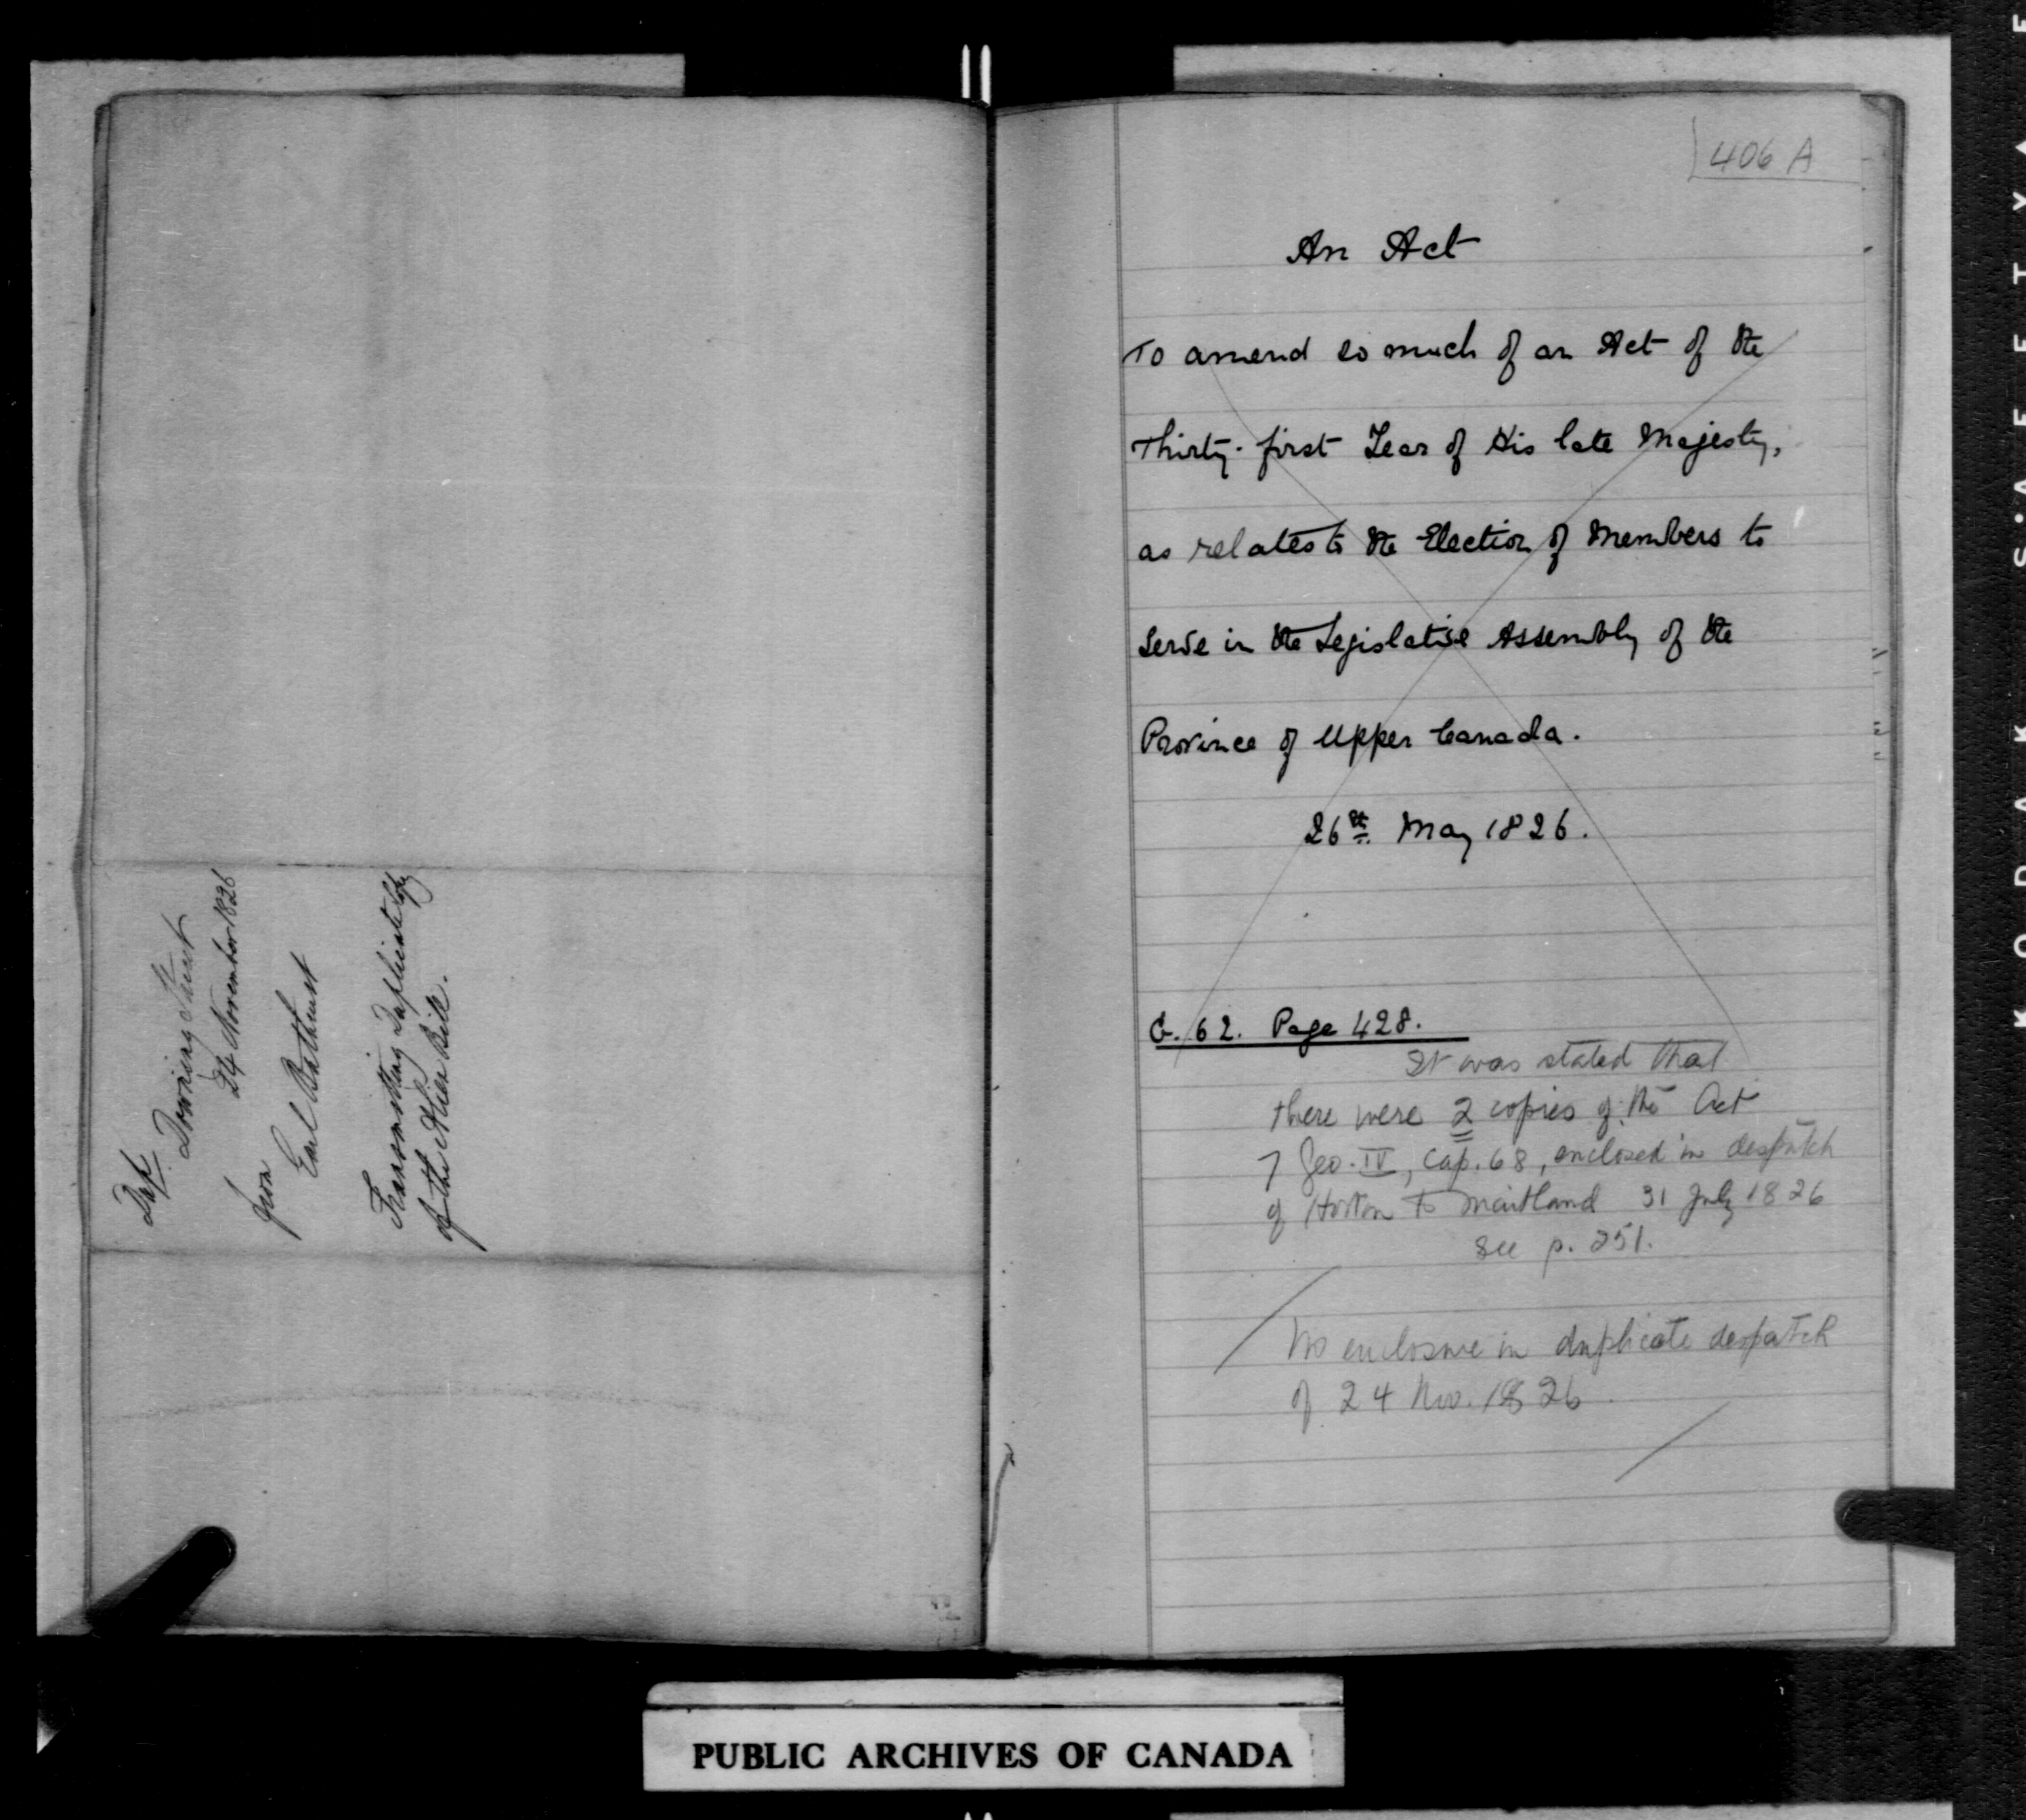 Dup.
Downing Street
24 November 1826
from
Earl Bathurst
Transmitting Duplicate Copy
of the Alien Bill.
406 A
An Act
To amend so much of an Act of the
Thirty-first Year of His late Majesty,
as relates to the Election of Members to
Serve in the Legislative Assembly of the
Province of Upper Canada.
26th May 1826.
G. 62. Page 428.
It was stated that
there were 2 copies of the Act
7 Geo. IV, cap. 68, enclosed in despatch
of Horton to Maitland 31 July 1826
see p. 251.
No enclosure in duplicate despatch
of 24 Nov. 1826
PUBLIC ARCHIVES OF CANADA
KODAK S'AFETY